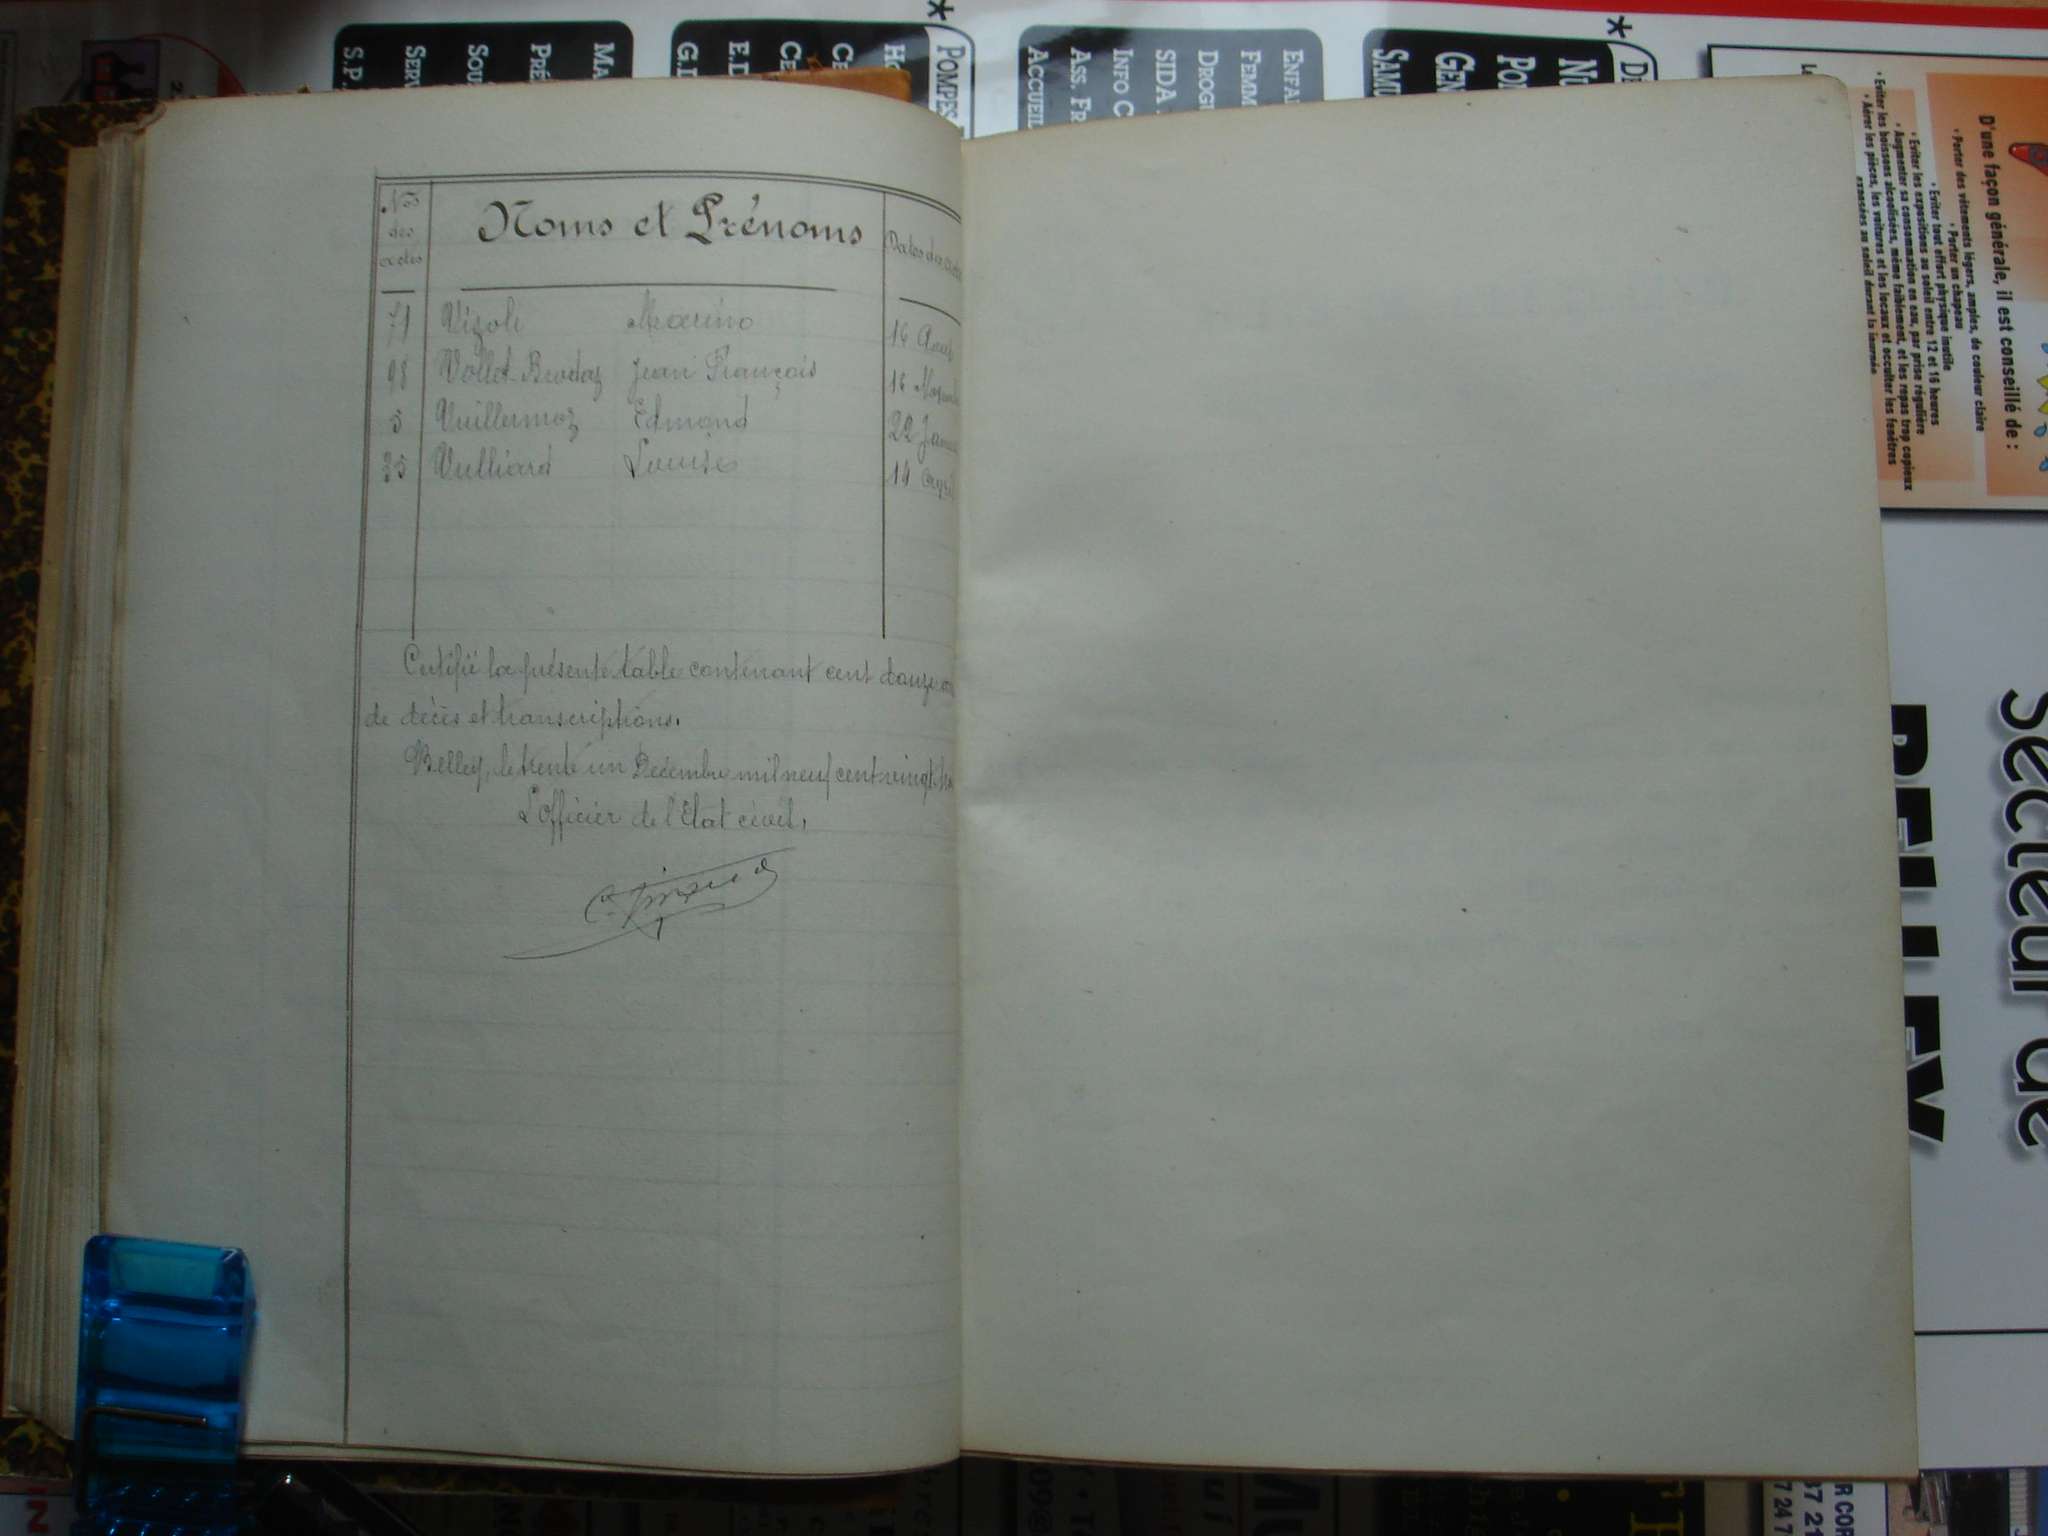 Nos
des
actes
Noms et Prénoms
Dates des
71 Vizoli Marino 14 Aout
98 Vollet-Brodaz Jean François 16
5 Vuillermoz Edmond 22 Janv
35 Vulliard Louise 14 Avril
Certifié la présente table contenant cent douze
de décès et transcriptions.
Belley, le trente un Décembre mil neuf cent vingt
L'Officier de l'Etat civil,
S.P.
SERV
SOU
PRÉ
MA
G.I
E.D
CE
HO
* POMPES
ACCUEIL
ASS. FR
INFO C
SIDA
DROGU
FEMM
ENFA
SAMU
GEN
PO
D'une façon générale, il est conseillé de :
• Porter des vêtements légers, amples, de couleur claire
• Porter un chapeau
• Eviter tout effort physique inutile
• Eviter les expositions au soleil entre 12 et 16 heures
• Augmenter sa consommation en eau, par prise régulière
• Eviter les boissons alcoolisées, même faiblement, et les repas trop copieux
• Aérer les pièces, les voitures et les locaux et occulter les fenêtres
exposées au soleil durant la journée
Secteur de
BELLEY